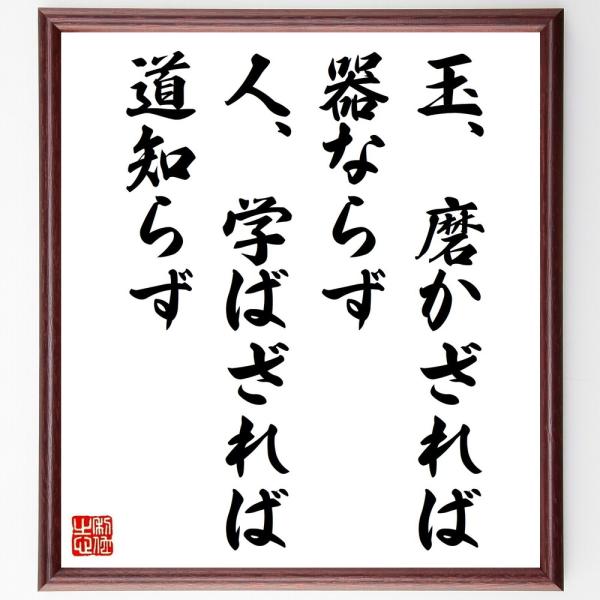 玉、磨かざれば
器ならず
人、学ばざれば
道知らず